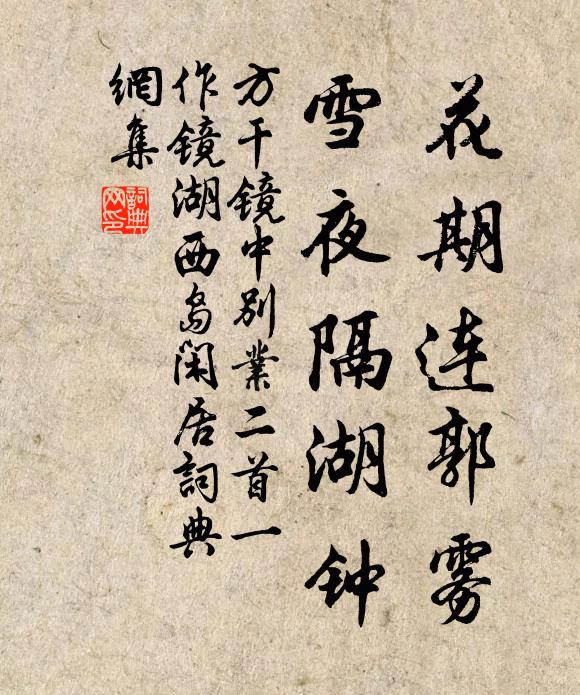 花期连郭雾
雪夜隔湖钟
方干镜中别業二首一
作镜湖西岛闲居詞典
網集
詞典
网印